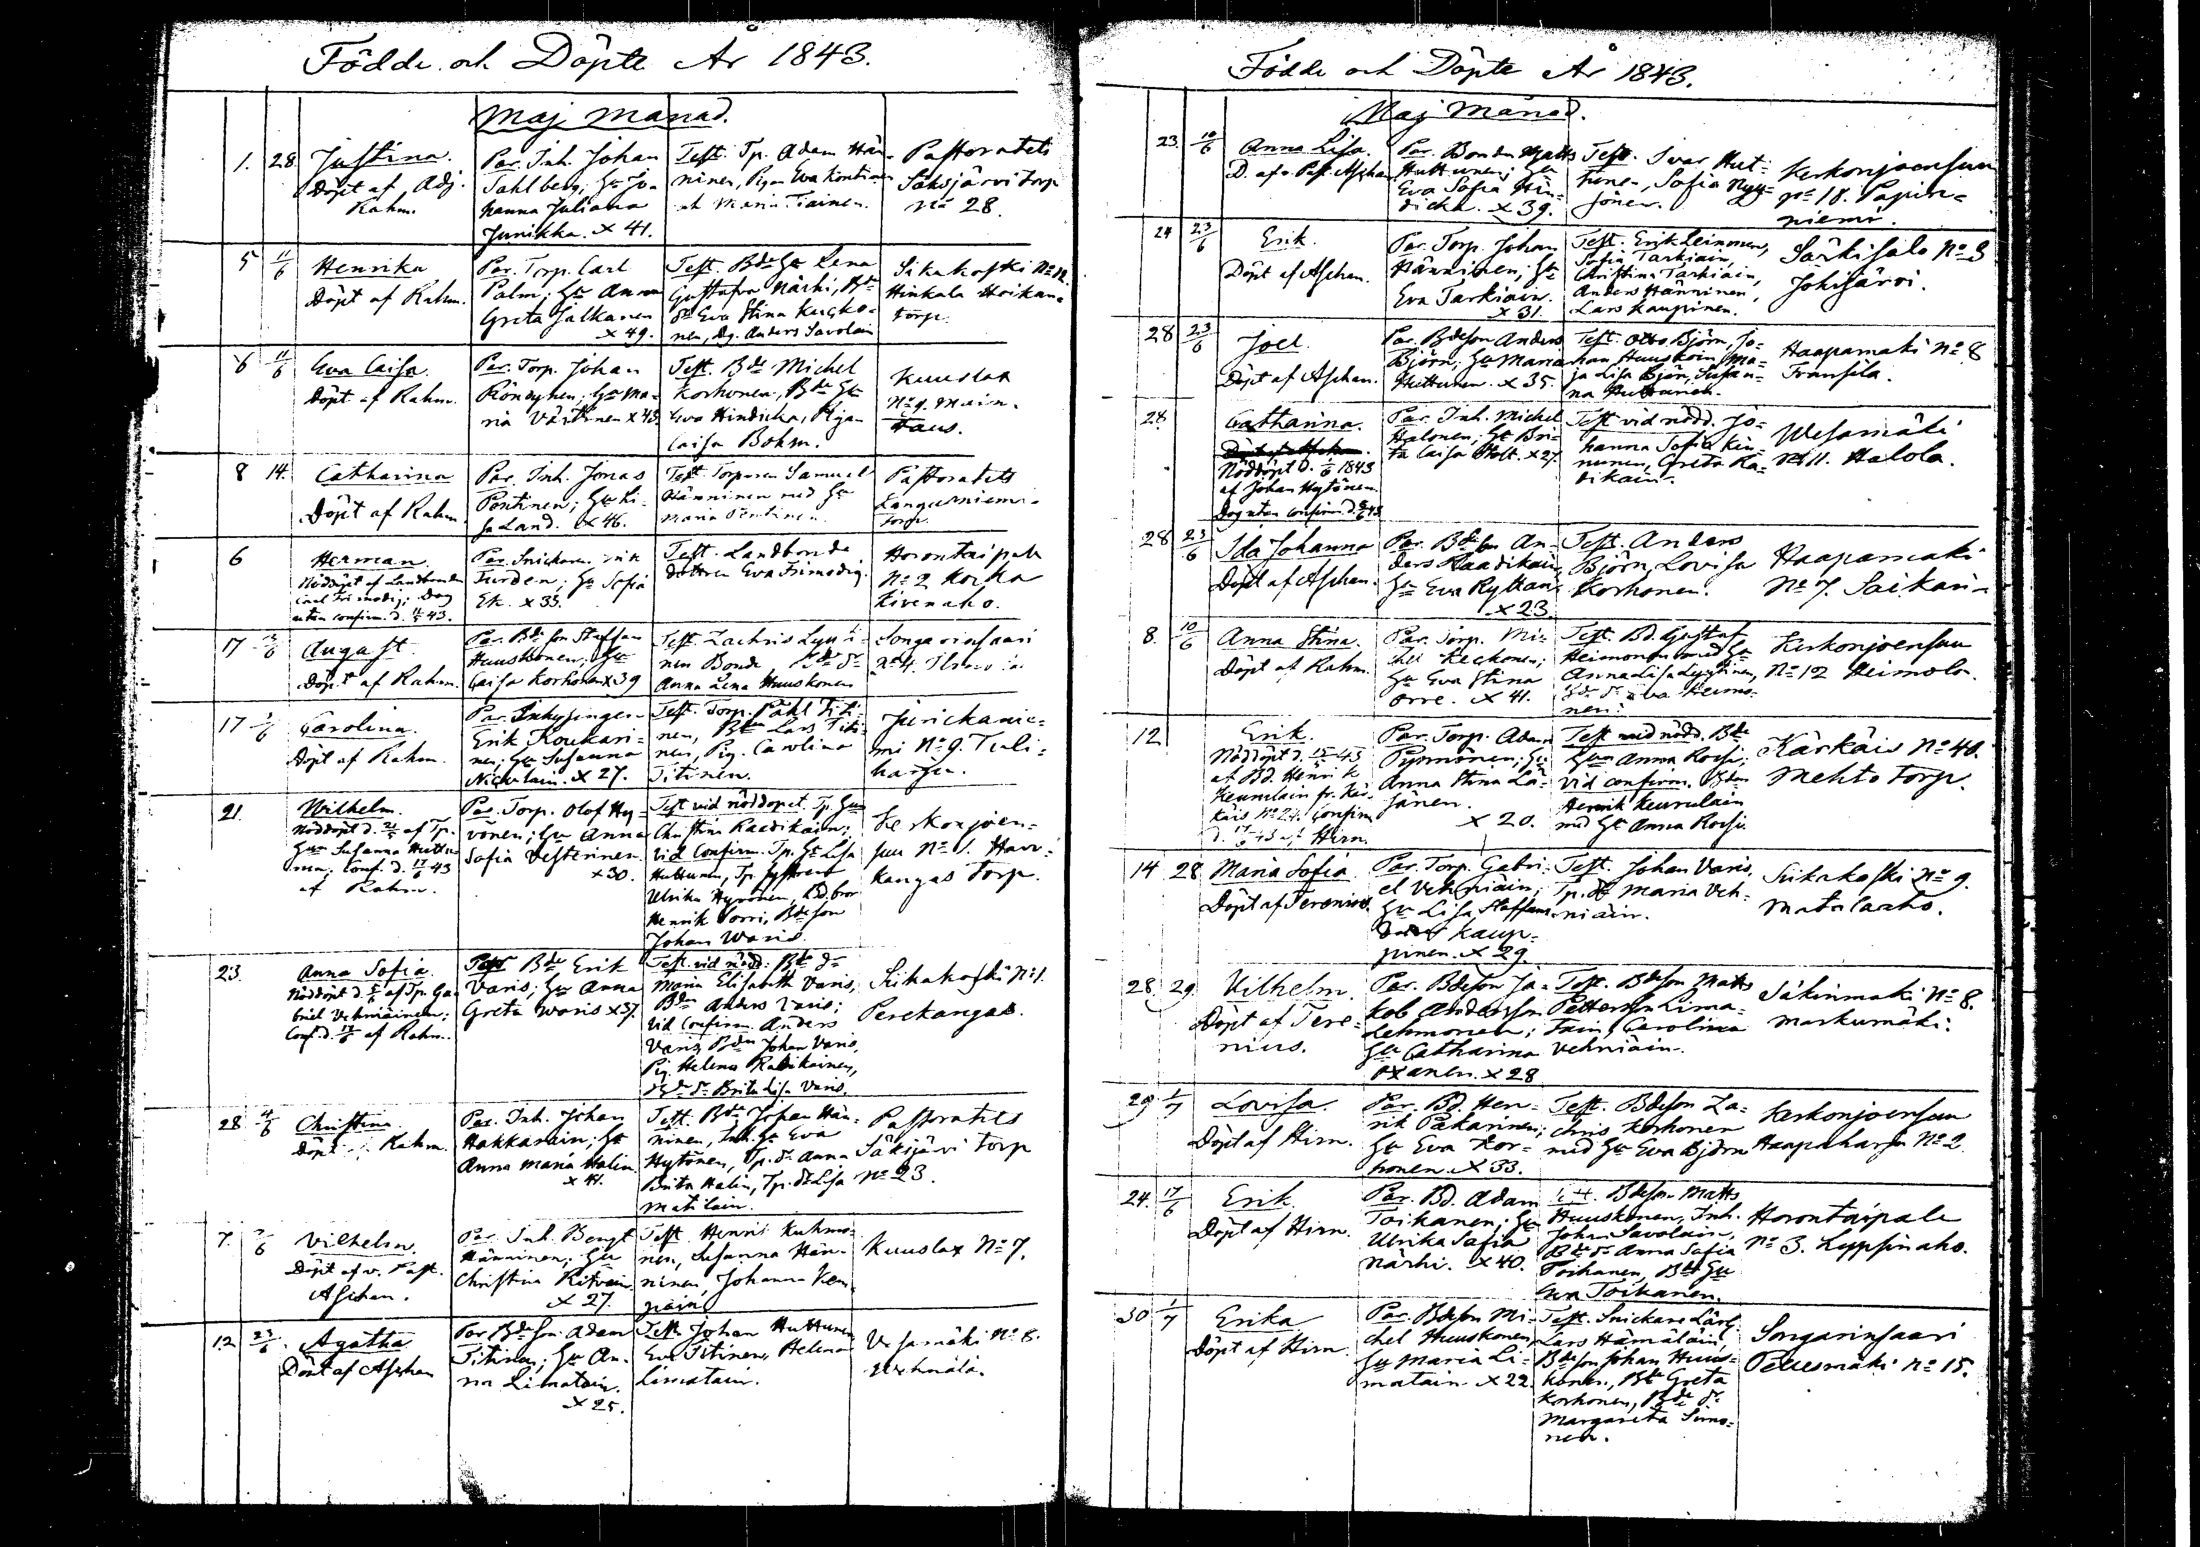 Födde och Döpte År 1843.
Maj Månad.
1. 28 Justina.
Döpt af Adj.
Rahm.
Par. Inh. Johan
Sahlberg; Hu Jo-
hanna Juliana
Junikka. x 41.
Test. Tp. Adam Hän-
ninen, Pigan Eva Kontinen
och Maria Tiainen.
Pastoratets
Säksjärvi torp
No 28.
5 11/6 Henrika
Döpt af Rahm.
Par. Torp. Carl
Palm; Hu Anna
Greta Jalkanen
x 49.
Test. Bde Hu Lena
Gustafva Närhi, Bde
dr Eva Stina Kuckko-
nen, Dg. Anders Savolain
Sikakoski No 12.
Hinkala Hoikan-
torp.
6 11/6 Eva Caisa.
Döpt af Rahm.
Par. Torp. Johan
Rönnynen; Hu Ma-
ria Värtinen x 43.
Test. Bde Michel
Korhonen, Bde Hu
Eva Hindicka, Pigan
Caisa Bohm.
Kuuslax
No 9. Main-
taus.
8 14. Catharina
Döpt af Rahm.
Par. Inh. Jonas
Pöntinen; Hu Li-
sa Land. x 46.
Test. Torparen Samuel
Hänninen med Hu
Maria Pöntinen.
Pastoratets
Languniemi-
torp.
6 Herman.
Nöddöpt af Landbonden
Carl Frimodig; Dop
acten confirm. d. 11/5 43.
Par. Snickaren
Turdén; Hu Sofia
Ek. x 33.
Test. Landbonde
dottren Eva Frimodig.
Horontaipale
No 2 Korka
Kivenaho.
17 August
Döpt af Rahm.
Par. Bde son Staffan
Huuskonen; Hu
Caisa Korhonen x 39
Test. Zachris Lyyti-
nen Bonde, Bde dr
Anna Lena Huuskonen
Songarinsaari
No 4.
17 1/6 Carolina.
Döpt af Rahm.
Par. Inhysingen
Erik Koukari-
nen; Hu Susanna
Nickulain. x 27.
Test. Torp. Påhl Titi-
nen, Bde Lars Titi-
nen, Pig. Carolina
Titinen.
Jurickanie-
mi No 9. Tuli-
harju.
21. Wilhelm.
Nöddöpt d. 21/5 af Tp.
Hun Susanna Huttu-
nen; Conf. d. 17/6 43
af Rahm.
Par. Torp. Olof Hy-
vönen; Hu Anna
Sofia Vesterinen
x 30.
Test vid nöddopet Tp. Hun
Christina Raadikain;
Vid Confirm. Tp. Hu Lisa
Huttunen, Tp. systrar
Ulrika Hyvönen, Bd. bror
Henrik Sorri, Bde son
Johan Waris.
Kerkonjoen-
suu No 1. Harr-
kangas torp.
23. Anna Sofia.
Nöddöpt d. 5/6 af Tp. Ga-
briel Vehniäinen;
Conf. d. 17/6 af Rahm.
Par Bde Erik
Varis; Hu Anna
Greta Waris x 37.
Test. vid nödd. Bde dr
Maria Elisabeth Varis,
Bden Anders Varis;
Vid Confirm. Anders
Varis, Bden Johan Varis,
Pig. Helena Radikainen,
Bde dr Brita Lisa Varis.
Siikakoski No 1.
Perekangas.
28 4/6 Christina
Döpt Rahm.
Par. Inh. Johan
Hakkarain; Hu
Anna Maria Halin
x 41.
Test. Bde Johan Hän-
ninen, Inh. Hu Eva
Hytönen, Tp. dr Anna
Brita Halin, Tp. dr Lisa
Matilain.
Pastoratets
Säksjärvi torp
No 23.
7. Vilhelm.
Döpt af v. Past.
Aschan.
Par. Inh. Bengt
Hänninen; Hu
Christina Kitvain
x 27.
Test. Henric Kuhmo-
nen, Susanna Hän-
ninen, Johanna Kem-
pain.
Kuuslax No 7.
12 23/6 Agatha
Döpt af Aschan
Par Bde son Adam
Titinen; Hu An-
na Limatain.
x 25.
Test. Johan Huttunen
Eva Titinen, Helena
Limatain.
Vesamäki No 8.
Vehmälä.
Födde och Döpte År 1843.
Maj Månad.
23. 10/6 Anna Lisa.
D. af v. Past. Aschan
Par. Bonden Matts
Huttunen; Hu
Eva Sofia Hin-
dicka. x 39.
Test. Ivar Hut-
tunen, Sofia Nyy-
sönen.
Kerkonjoensuu
No 18. Papin-
niemi.
24 23/6 Erik.
Döpt af Aschan.
Par. Torp. Johan
Hänninen; Hu
Eva Tarkiain.
x 31.
Test. Erik Leinonen,
Sofia Tarkiain,
Christina Tarkiain,
Anders Hänninen,
Lars Kaupinen.
Särkisalo No 3
Johisjärvi.
28 23/6 Joel.
Döpt af Aschan.
Par. Bdeson Anders
Björn; Hu Maria
Huttunen. x 35.
Test. Otto Björn, Jo-
han Huuskoin, Ma-
ja Lisa Björn, Susan-
na Huttunen.
Haapamäki No 8
Fransila.
28. Catharina.
Nöddöpt d. 1/6 1843
af Johan Hytönen.
Dopacten confirm. d. 8/6 43
Par. Inh. Michel
Halonen; Hu Bri-
ta Caisa Holt. x 27.
Test vid nödd. Jo-
hanna Sofia Kin-
nunen, Greta Ra-
dikain.
Wesamäki
No 11. Halola.
28 23/6 Ida Johanna
Döpt af Aschan.
Par. Bdeson An-
ders Raadikain
Hu Eva Rytkön
x 23.
Test. Anders
Björn, Lovisa
Korhonen.
Haapamäki
No 7. Saikari
8. 10/6 Anna Stina.
Döpt af Rahm.
Par. Torp. Mi-
chel Keckonen;
Hu Eva Stina
Orre. x 41.
Test. Bd. Gustaf
Heimonen med Hu
Anna Lisa Lyytinen,
Bde dr Eva Heimo-
nen.
Kerkonjoensuu
No 12 Heimola.
12 Erik.
Nöddöpt d. 15/5 43
af Bd. Henrik
Keurulain fr. Kär-
käis No 24. Confirm
d. 17/6 43 af Hirn.
Par. Torp. Adam
Pyrmönen; Hu
Anna Stina Lai-
janen.
x 20.
Test med nödd. Bde
Hun Anna Rossi;
Vid confirm. Bden
Henrik Keurulain
med Hu Anna Rossi.
Kärkäis No 40.
Mehto torp.
14 28 Maria Sofia
Döpt af Terenius.
Par. Torp. Gabri-
el Vehniäin;
Hu Lisa Staffans-
dotter Kaup-
pinen. x 29.
Test. Johan Varis,
Tp. dr Maria Veh-
niäin.
Siikakoski No 9.
Matalaaho.
28 29 Vilhelm.
Döpt af Tere-
nius.
Par. Bdeson Ja-
kob Andersson
Lehmonen;
Hu Catharina
Oxanen. x 28
Test. Bdeson Matts
Pettersson Lima-
tain, Carolina
Vehniäin.
Säkinmäki No 8.
Markumäki.
29 1/7 Lovisa.
Döpt af Hirn.
Par. Bd. Hen-
rik Pakarinen;
Hu Eva Kor-
honen. x 33.
Test. Bdeson Za-
chris Korhonen
med Hu Eva Björn
Kerkonjoensuu
Haapaharju No 2
24. 17/6 Erik
Döpt af Hirn.
Par. Bd. Adam
Toikanen; Hu
Ulrika Sofia
Närhi. x 40.
Test. Bdeson Matts
Huuskonen, Inh.
Johan Savolain,
Bde dr Anna Sofia
Toikanen, Bde Hu
Eva Toikanen.
Horontaipale
No 3. Lyppinaho.
30 1/7 Erika
Döpt af Hirn.
Par. Bdeson Mi-
chel Huuskonen
Hu Maria Li-
matain. x 22.
Test. Snickare Lärl.
Lars Hämäläin,
Bdeson Johan Huus-
konen, Bde Greta
Korhonen, Bde dr
Margareta Simo-
nen.
Songarinsaari
Pellesmäki No 15.